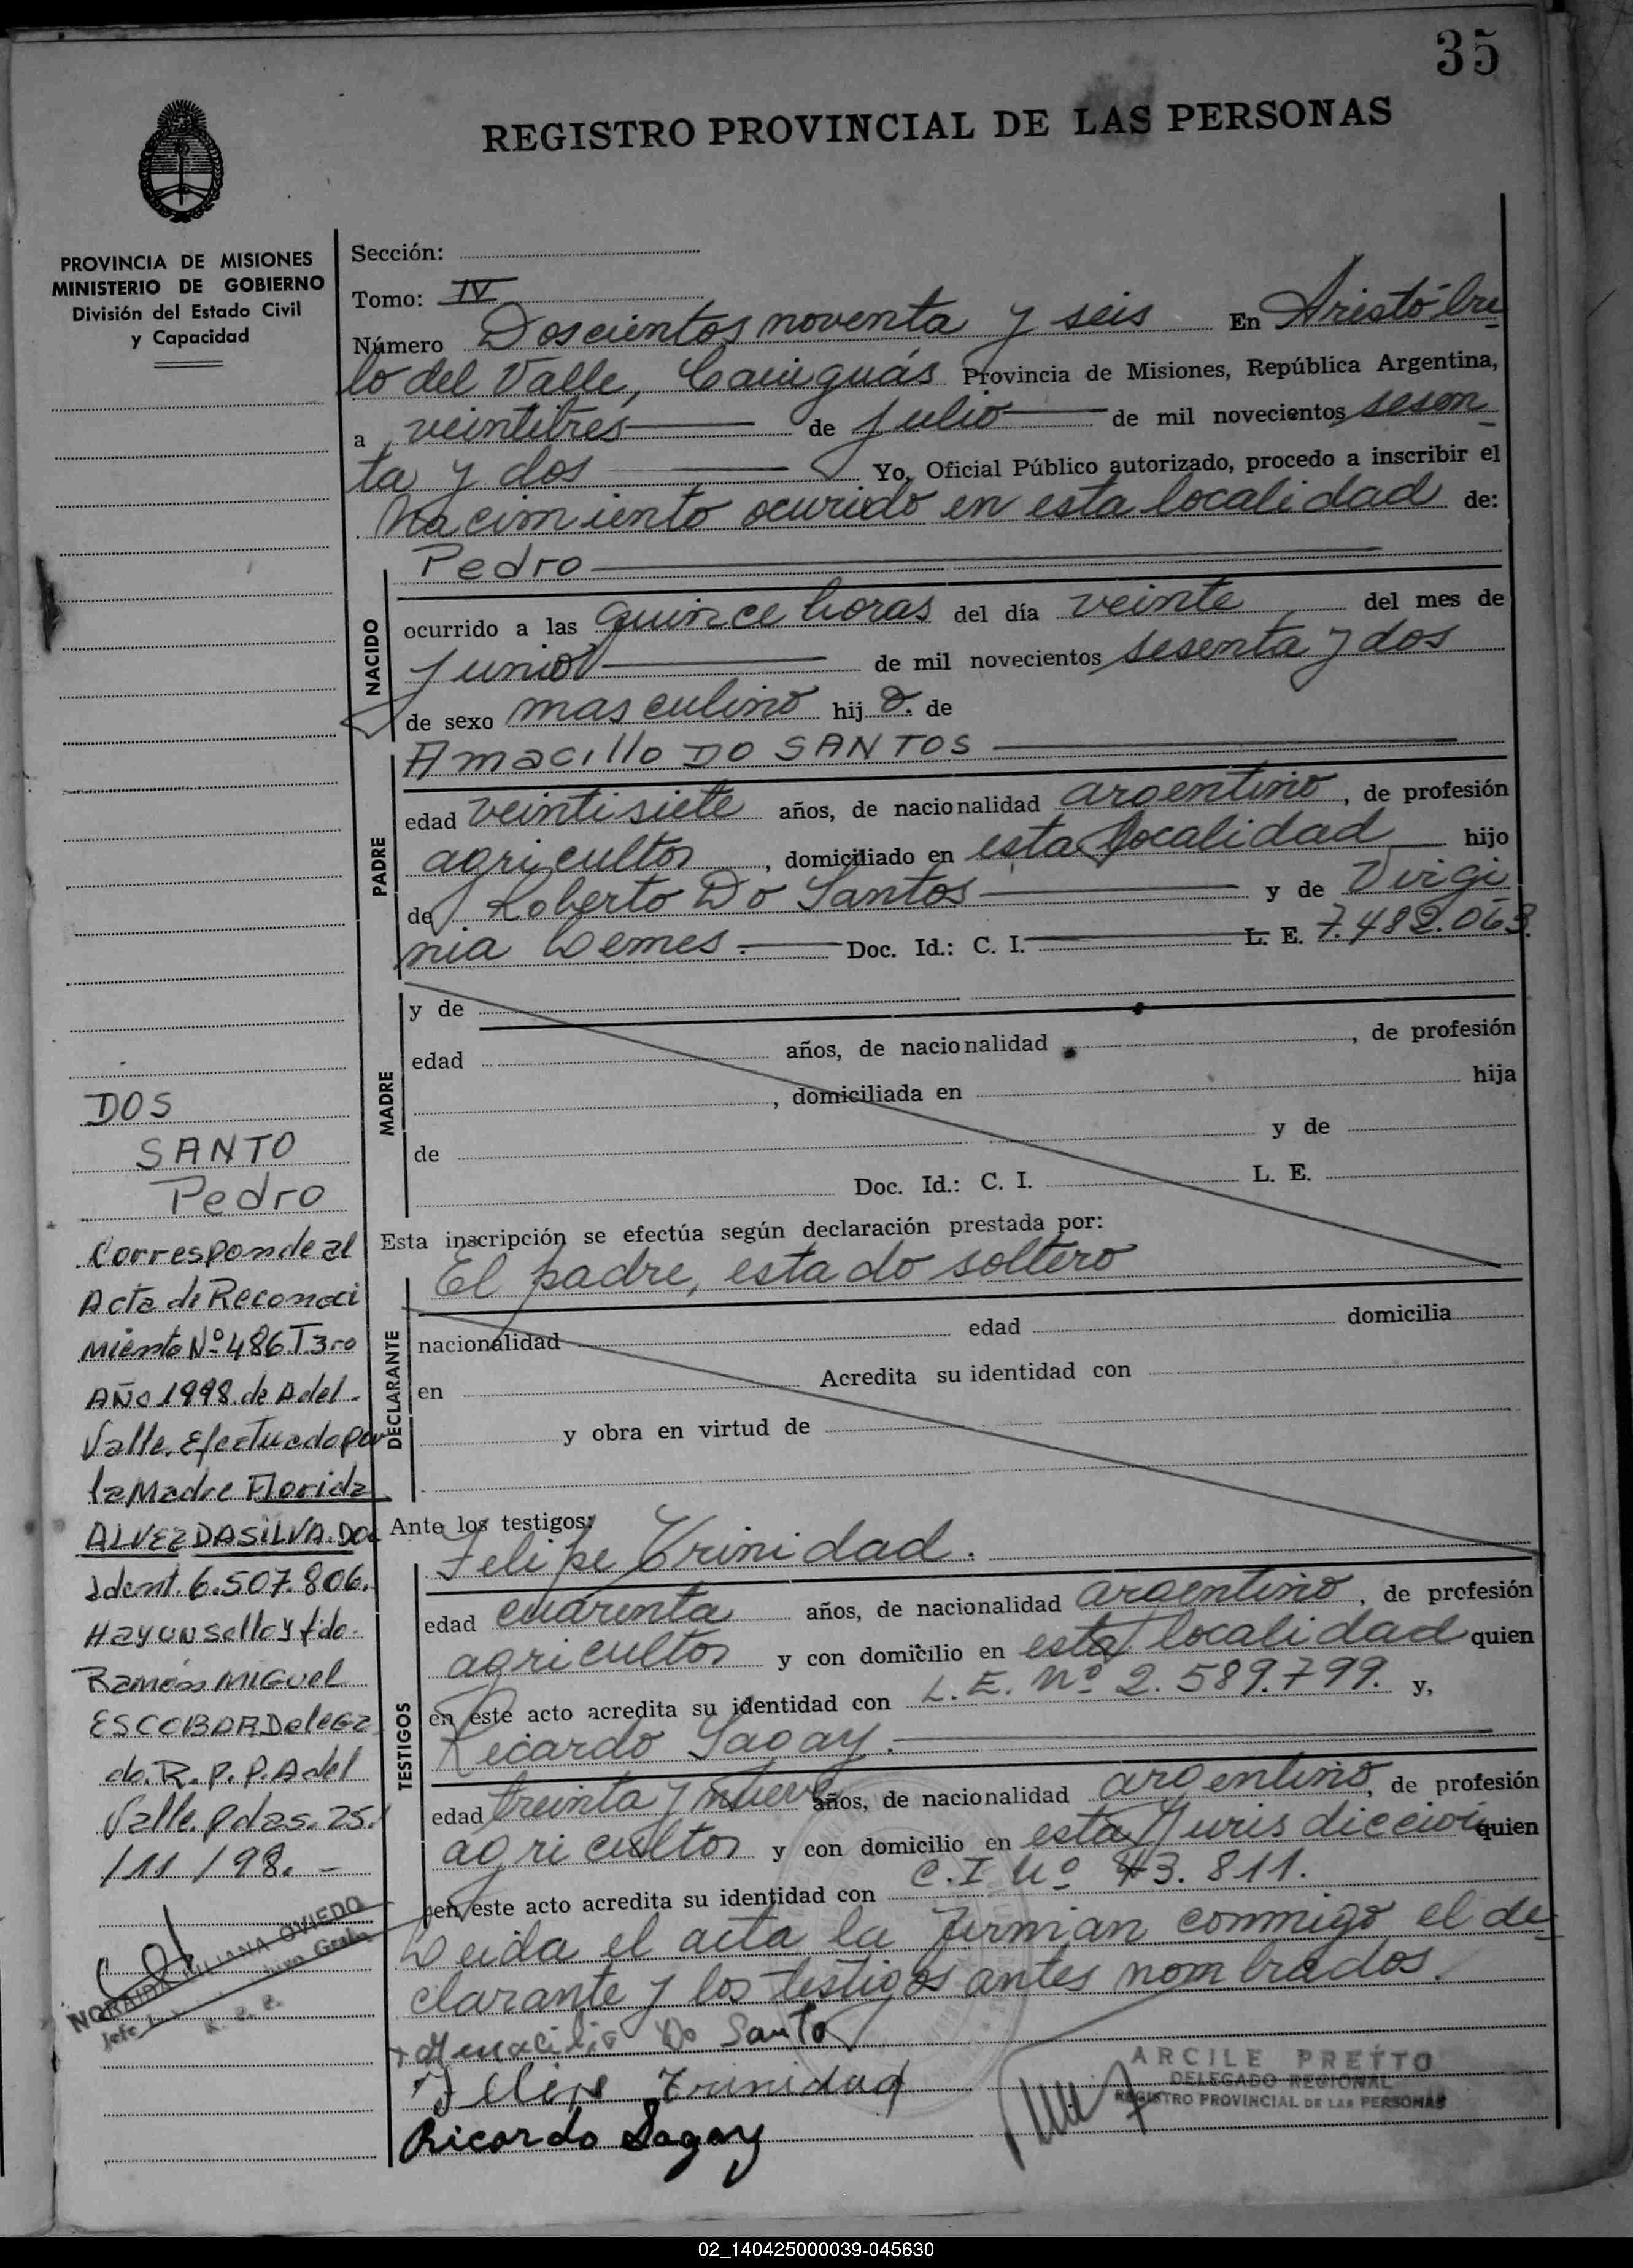 35
REGISTRO PROVINCIAL DE LAS PERSONAS
PROVINCIA DE MISIONES
MINISTERIO DE GOBIERNO
División del Estado Civil
y Capacidad
Sección:
Tomo: IV
Número Doscientos noventa y seis En Aristóbu
lo del Valle, Cainguás Provincia de Misiones, República Argentina,
a veintitres de Julio de mil novecientos sesen
ta y dos Yo, Oficial Público autorizado, procedo a inscribir el
Nacimiento ocurido en esta localidad de:
Pedro
NACIDO
ocurrido a las quince horas del día veinte del mes de
Junio de mil novecientos sesenta y dos
de sexo masculino hij o. de
Amacillo DO SANTOS
PADRE
edad veintisiete años, de nacionalidad argentino, de profesión
agricultor, domiciliado en esta localidad hijo
de Roberto Do Santos y de Virgi
nia Lemes.- Doc. Id.: C. I. L. E. 7.482.063.
MADRE
y de
edad años, de nacionalidad , de profesión
, domiciliada en hija
de y de
Doc. Id.: C. I. L. E.
Esta inscripción se efectúa según declaración prestada por:
El padre, estado soltero
DECLARANTE
nacionalidad edad domicilia
en Acredita su identidad con
y obra en virtud de
Ante los testigos:
Felipe Trinidad.
TESTIGOS
edad cuarenta años, de nacionalidad argentino, de profesión
agricultor y con domicilio en esta localidad quien
en este acto acredita su identidad con L. E. Nº 2.589.799. y,
Ricardo Sagay.
edad treinta y nueve años, de nacionalidad argentino, de profesión
agricultor y con domicilio en esta Jurisdicción quien
en este acto acredita su identidad con C. I Nº 43.811.
Leida el acta la firman conmigo el de
clarante y los testigos antes nombrados.
Amacilio Do Santo
Felipe Trinidad
Ricardo Sagay
ARCILE PRETTO
DELEGADO REGIONAL
REGISTRO PROVINCIAL DE LAS PERSONAS
DOS
SANTO
Pedro
Corresponde al
Acta de Reconoci
Miento Nº 486.T3ro
AÑO 1998. de A del-
Valle. Efectuado por
la Madre Florida
ALVEZ DASILVA. Doc
Ident. 6.507.806.
Hay un sello y fdo.
Ramón MIGUEL
ESCOBAR Delega
do. R. P. P. A del
Valle. Pdas. 25.
/11/98.-
NORAIDA LILIANA OVIEDO
02_140425000039-045630